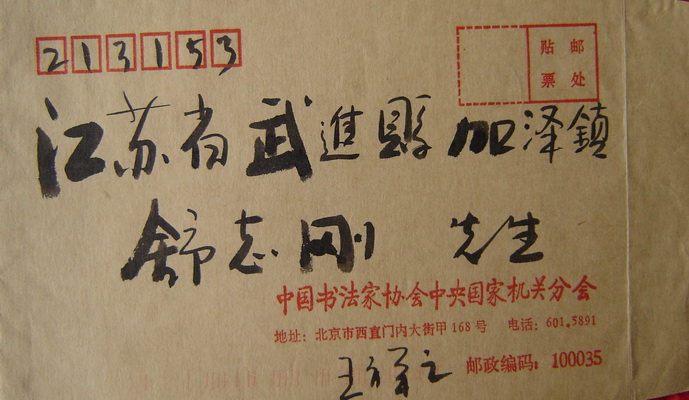 213153
贴 邮
票 处
江苏省武進縣加泽鎮
舒志刚 先生
中国书法家协会中央国家机关分会
地址：北京市西直门内大街甲168号 电话：601.5891
邮政编码：100035